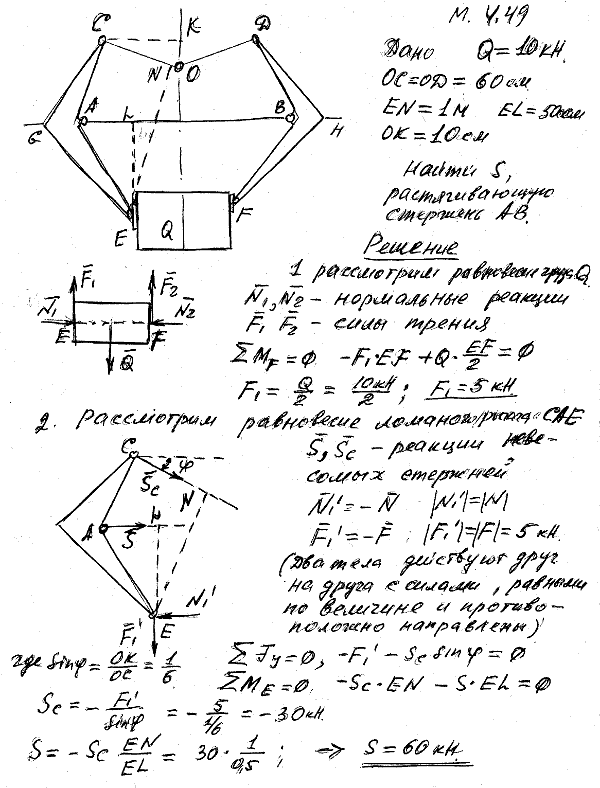 М. 4.49
Дано Q = 10 кН.
OC = OD = 60 см
EN = 1 м EL = 50 см
OK = 10 см
Найти S,
растягивающую
стержень AB.
C K D
N O
A L B
G H
E Q F
Решение
1 рассмотрим равновесие груза Q.
N̄₁, N̄₂ – нормальные реакции
F̄₁ F̄₂ – силы трения
ΣM_F = 0 -F₁·EF + Q·EF/2 = 0
F₁ = Q/2 = 10кН/2 ; F₁ = 5 кН
F̄₁ F̄₂
N̄₁ N̄₂
E F
Q̄
2. Рассмотрим равновесие ломаного рычага CAE
S̄, S̄c – реакции неве-
сомых стержней
N̄₁' = -N̄ |N₁'| = |N|
F̄₁' = -F̄ ; |F₁'| = |F| = 5 кН.
(Два тела действуют друг
на друга с силами, равными
по величине и противо-
положно направлены)
C φ
S̄c N
A S̄ L
N̄₁'
F̄₁' E
где sinφ = OK/OC = 1/6
ΣFy = 0, -F₁' - Sc sinφ = 0
ΣM_E = 0. -Sc·EN - S·EL = 0
Sc = - F₁'/sinφ = - 5/1/6 = -30 кН.
S = - Sc EN/EL = 30 · 1/0,5 ; ⇒ S = 60 кН.